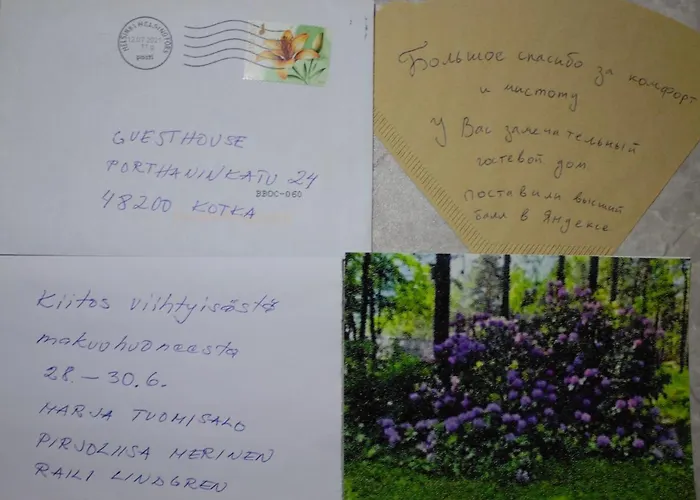 posti
GUESTHOUSE
PORTHANINKATU 24
BBDC-060
48200 KOTKA
Большое спасибо за комфорт
и чистоту
У Вас замечательный
гостевой дом
поставили высший
балл в Яндексе
Kiitos viihtyisästä
makuuhuoneesta
28.-30.6.
MARJA TUOMISALO
PIRJOLIISA MERINEN
RAILI LINDGREN